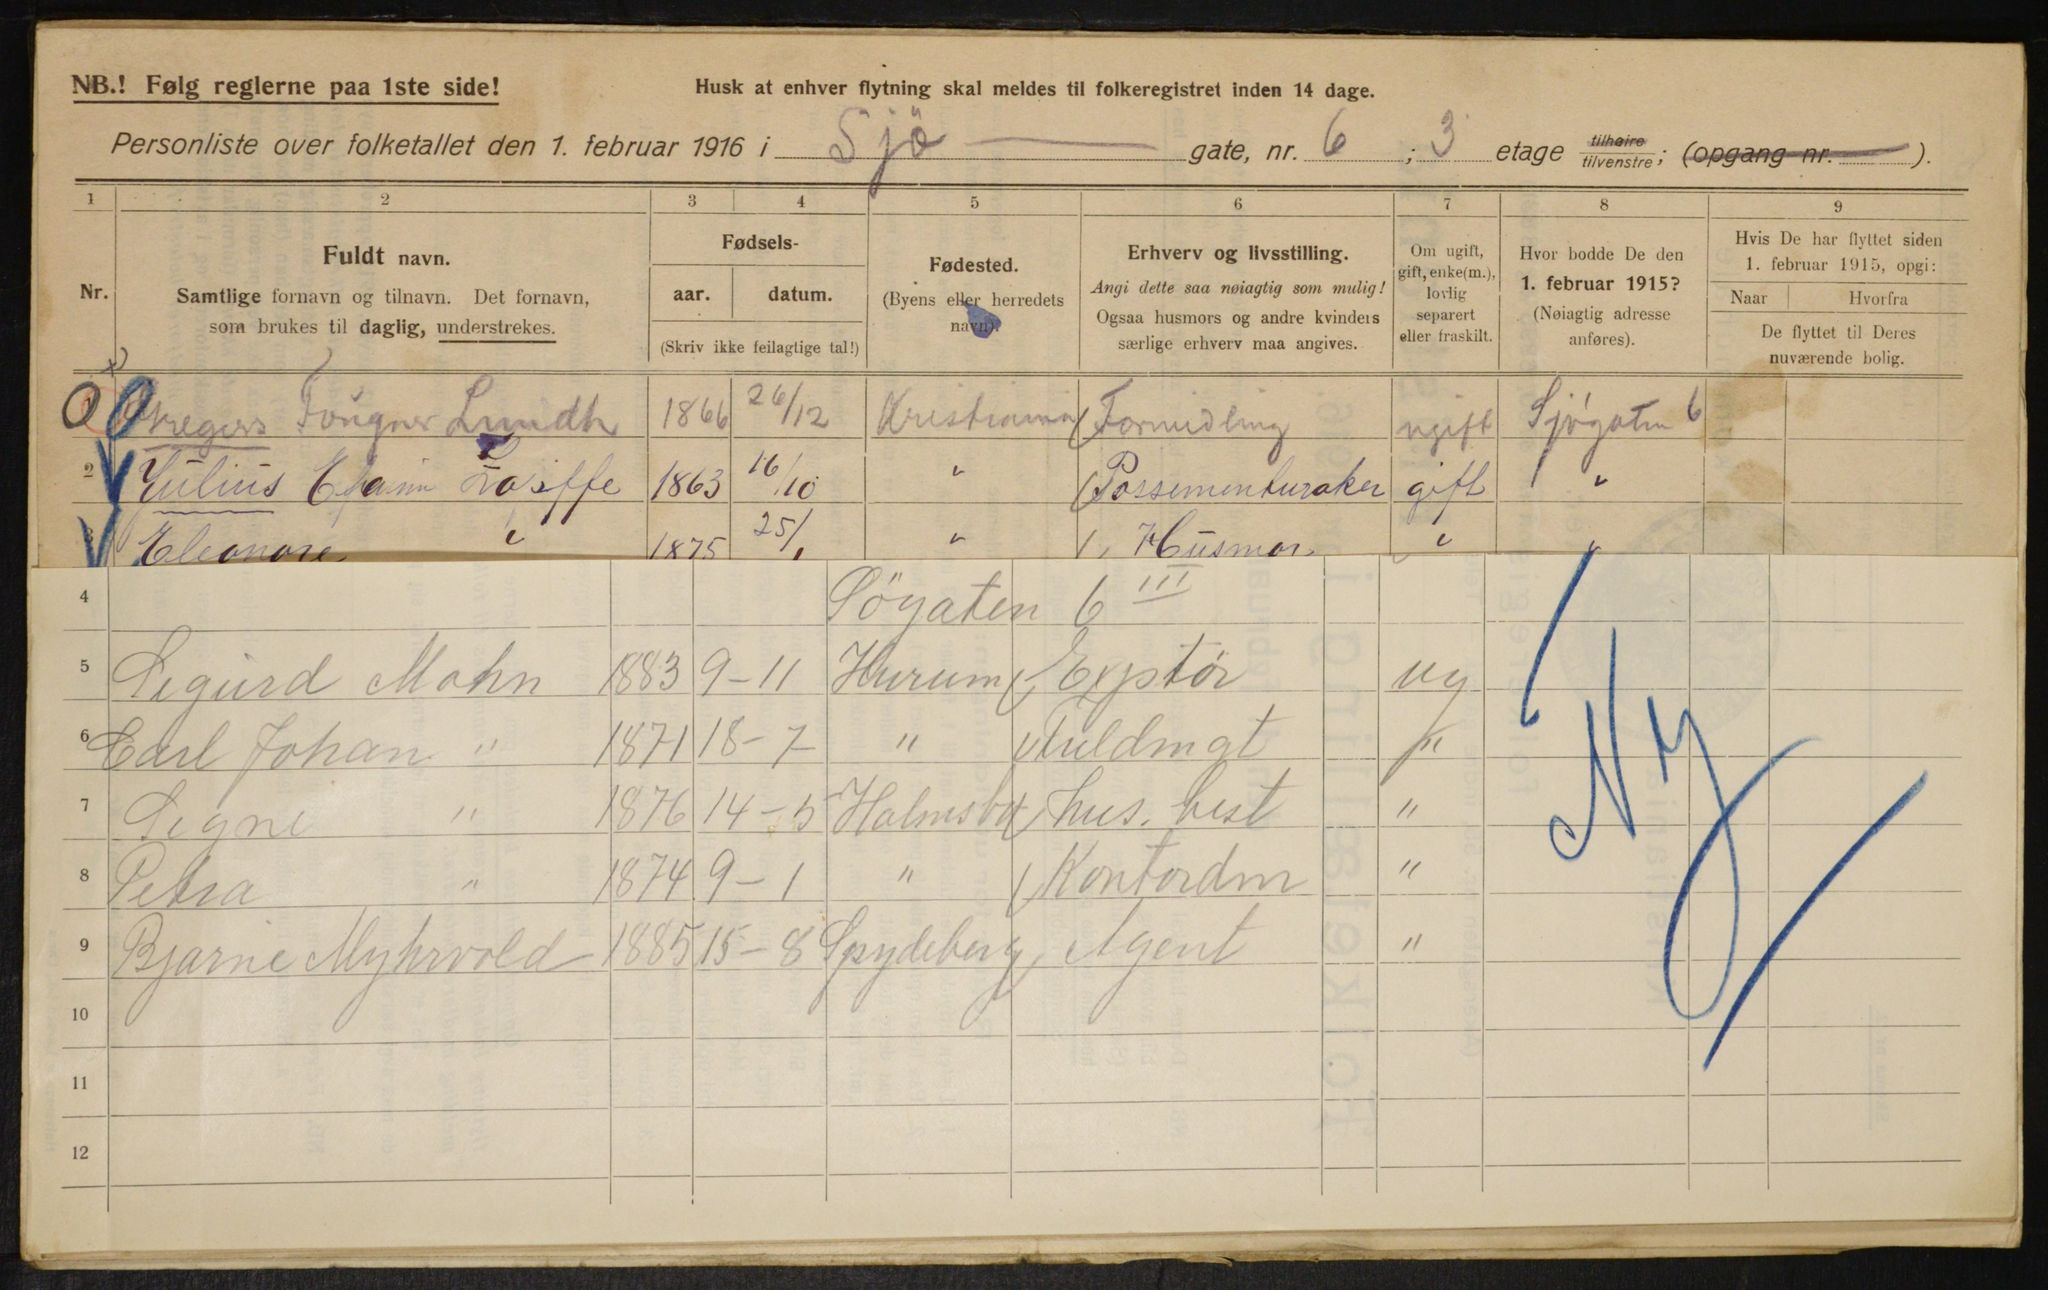 NB.! Følg reglerne paa 1ste side!
Husk at enhver flytning skal meldes til folkeregistret inden 14 dage.
Personliste over folketallet den 1. februar 1916 i Sjö gate, nr. 6 ; 3 etage tilhøire tilvenstre; (opgang nr. ).
1 2 3 4 5 6 7 8 9
Nr.
Fuldt navn.
Samtlige fornavn og tilnavn. Det fornavn,
som brukes til daglig, understrekes.
Fødsels-
aar. datum.
(Skriv ikke feilagtige tal!)
Fødested.
(Byens eller herredets
navn).
Erhverv og livsstilling.
Angi dette saa nøiagtig som mulig!
Ogsaa husmors og andre kvinders
særlige erhverv maa angives.
Om ugift,
gift, enke(m.),
lovlig
separert
eller fraskilt.
Hvor bodde De den
1. februar 1915?
(Nøiagtig adresse
anføres).
Hvis De har flyttet siden
1. februar 1915, opgi:
Naar Hvorfra
De flyttet til Deres
nuværende bolig.
1 Gregers Fougner Lundh 1866 26/12 Kristiania Formidling ugift Sjøgaten 6
2 Julius 1863 16/10 " Possementmaker gift "
3 Eleonore " 1875 25/1 " Husmor " "
4 Søgaten 6 III
5 Sigurd Mohn 1883 9-11 Hurum Exptør ug
6 Carl Johan " 1871 18-7 " Fuldmgt "
7 Signe " 1876 14-5 Holmsbo hus. best "
8 Petra " 1874 9-1 " Kontordm "
9 Bjarne Myhrvold 1885 15-8 Spydeberg Agent "
Ny
10
11
12